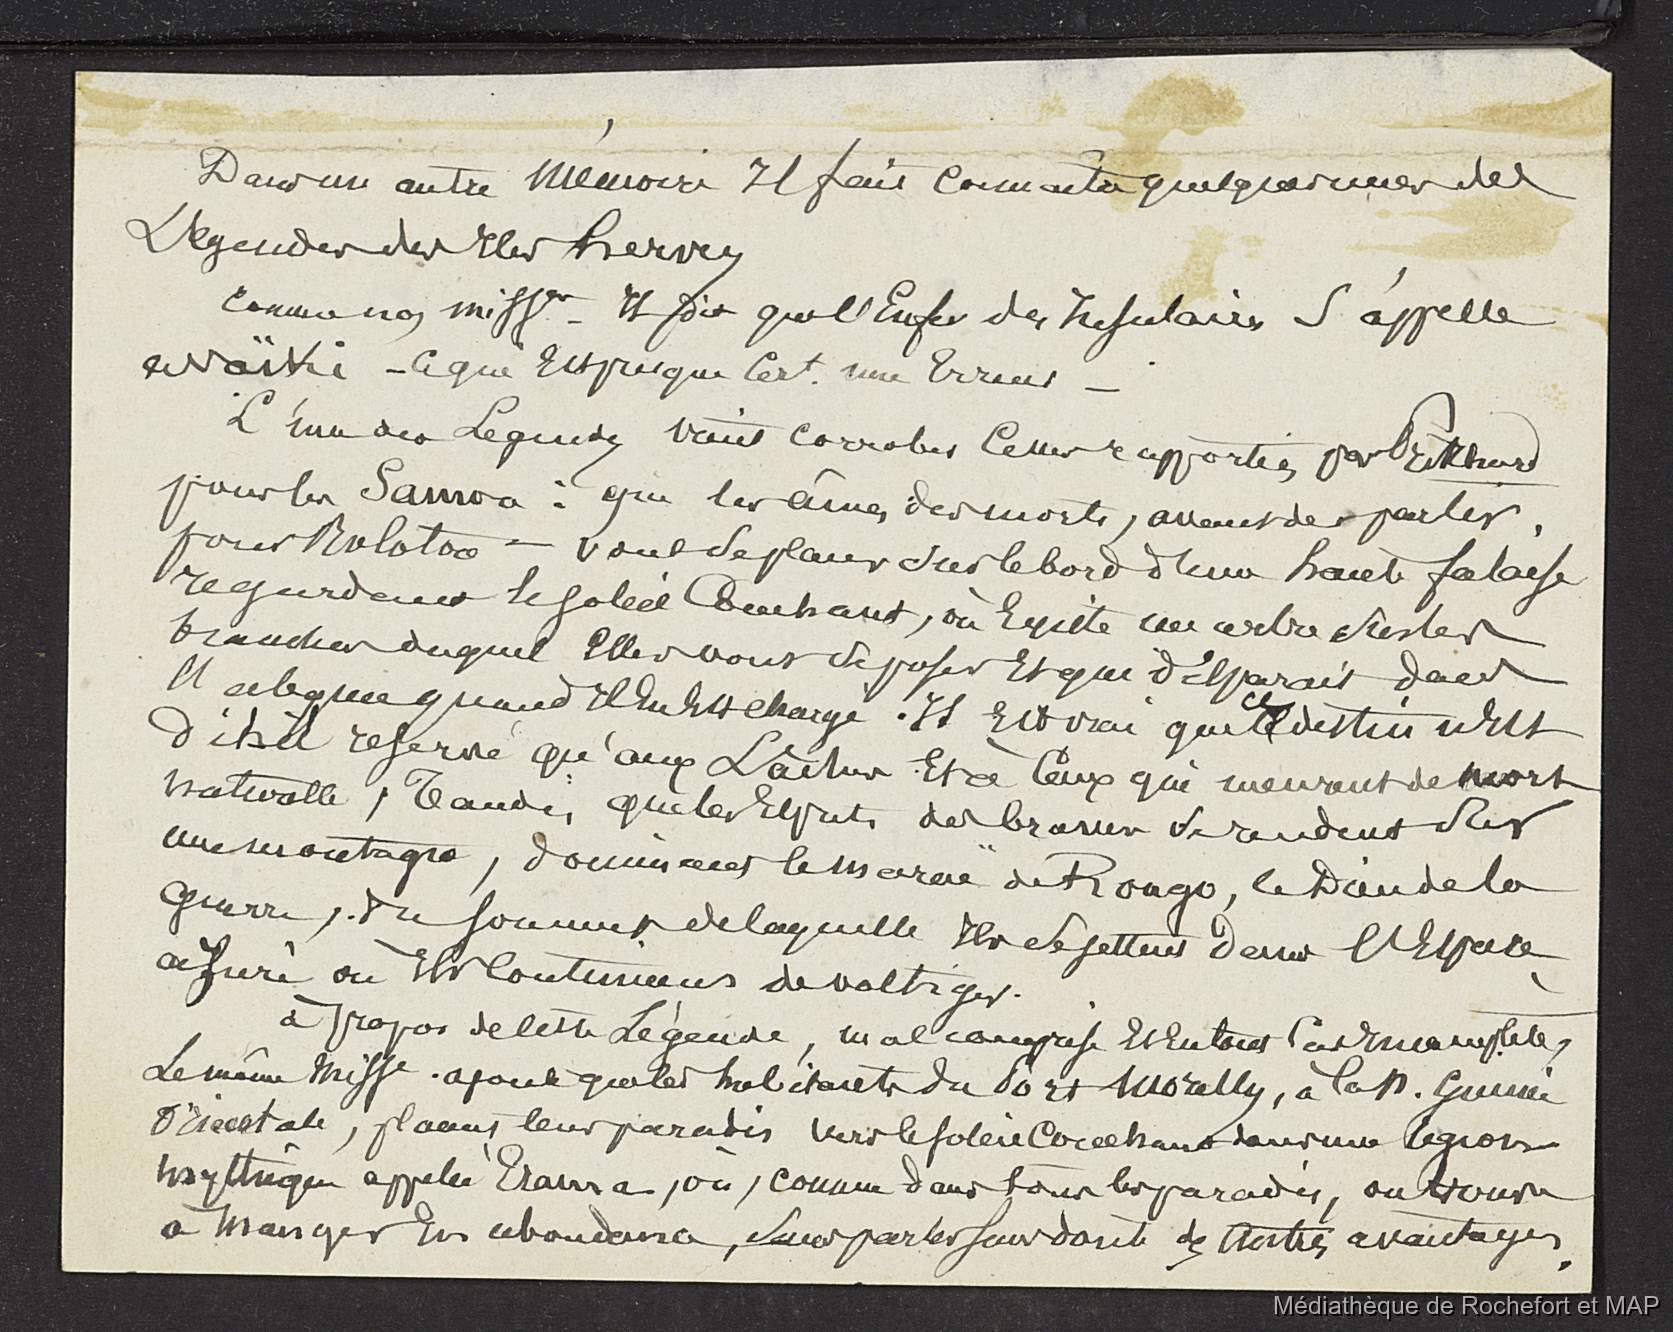 Dans un autre Mémoire Il fait connaitre quelques unes des
Légendes des Iles hervey
comme nos miss.re _ Il dit que l'Enfer des Insulaires S'appelle
_ ce qui Est presque Cert. une Erreur _
L'une des Légendes vient corrober Celles rapportées par Pritchard
pour les Samoa : que les âmes des morts, avant de partir,
pour Rolotoo _ vont se placer sur le bord d'une haute falaise
regardant le soleil Couchant, où Existe un arbre sur les
branches duquel Elles vont se poser Et qui disparait dans
l'abyme quand Il En Est chargé. Il Est vrai que ce destin n'Est
dit-il reservé qu'aux Lâches Et à Ceux qui meurent de mort
naturelle, Tandis que les Esprits des braves se rendent sur
une montagne, dominant le maraë de Rongo, le Dieu de la
guerre, du sommet de laquelle Ils se jettent dans l'Espace
azuré où Ils Continuent de voltiger.
à propos de cette Légende, mal comprise Et En tout Cas Incomplète,
Le même Miss.re ajoute que les habitants du Port Moresby, à la N. Guinée
Orientale, placent leur paradis vers le soleil Couchant dans une région
mythique appelée Erama, où, comme dans tous les paradis, on trouve
à Manger En abondance, sans parler sans doute des Autres avantages.
Médiathèque de Rochefort et MAP